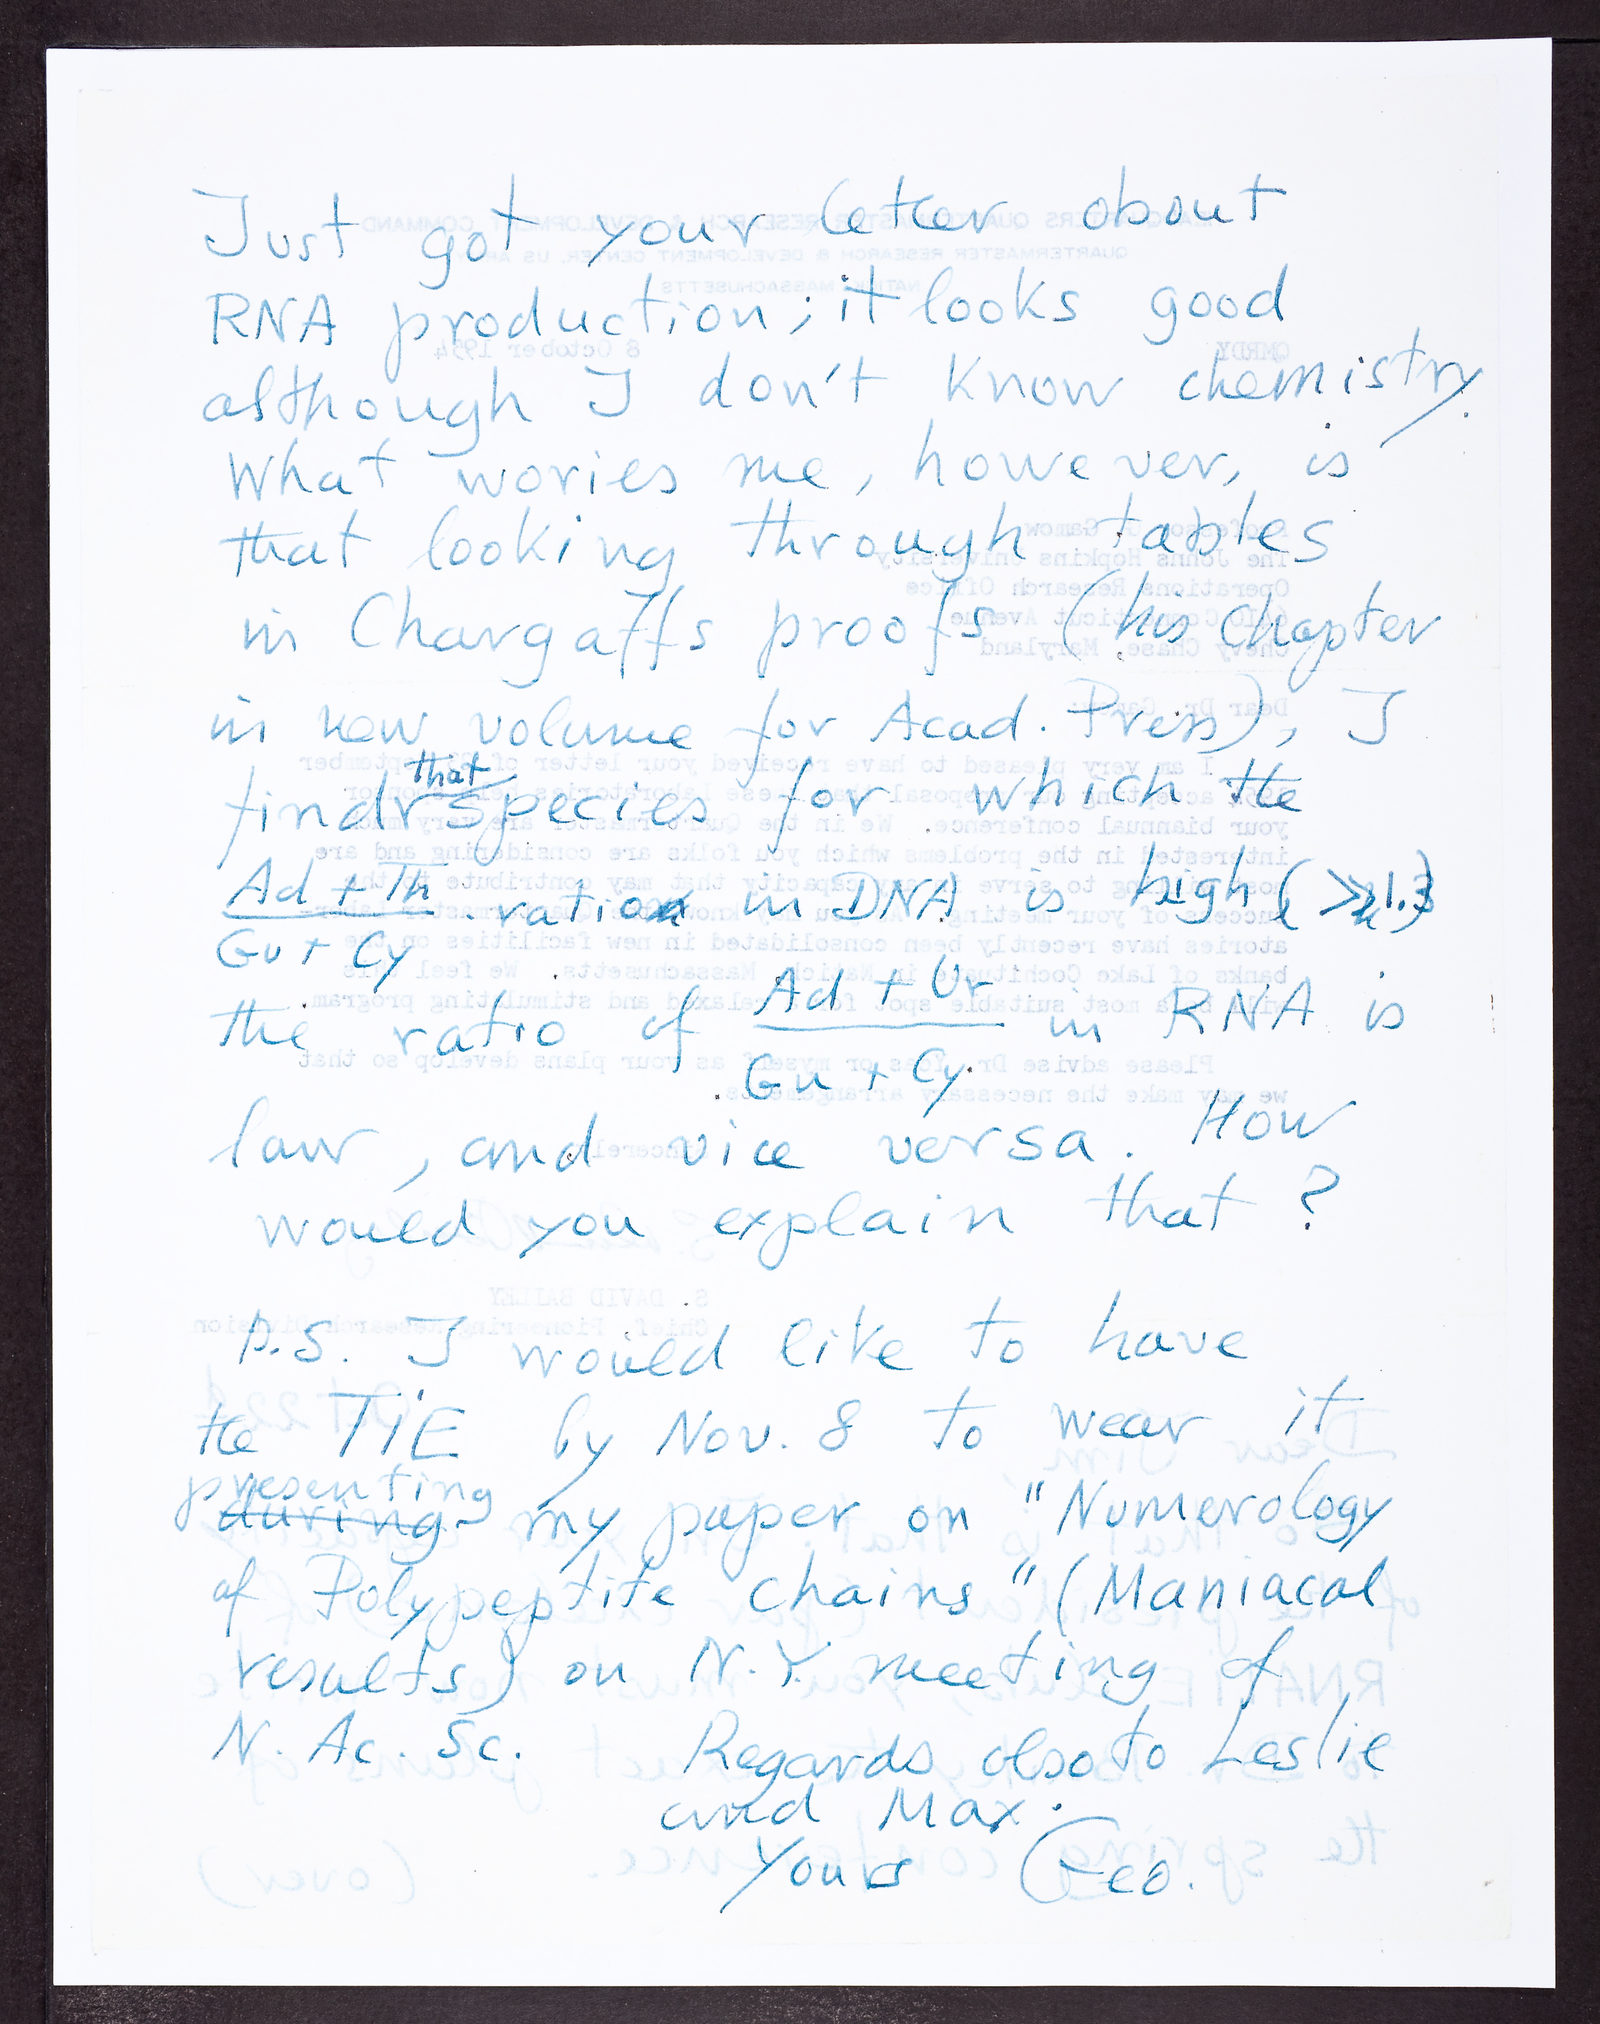 Just got your letter about
RNA production; it looks good
although I don't know chemistry.
What wories me, however, is
that looking through tables
in Chargaffs proofs (his chapter
in new volume for Acad. Press), I
find that species for which the
Ad + Th ratio in DNA is high (>1.3)
Gu + Cy
the ratio of Ad + Ur in RNA is
Gu + Cy
law, and vice versa. How
would you explain that?
p.s. I would like to have
the TiE by Nov. 8 to wear it
presenting
during my paper on "Numerology
of Polypeptite chains" (Maniacal
results) on N.Y. meeting of
N. Ac. Sc. Regards also to Leslie
and Max.
Yours Geo.